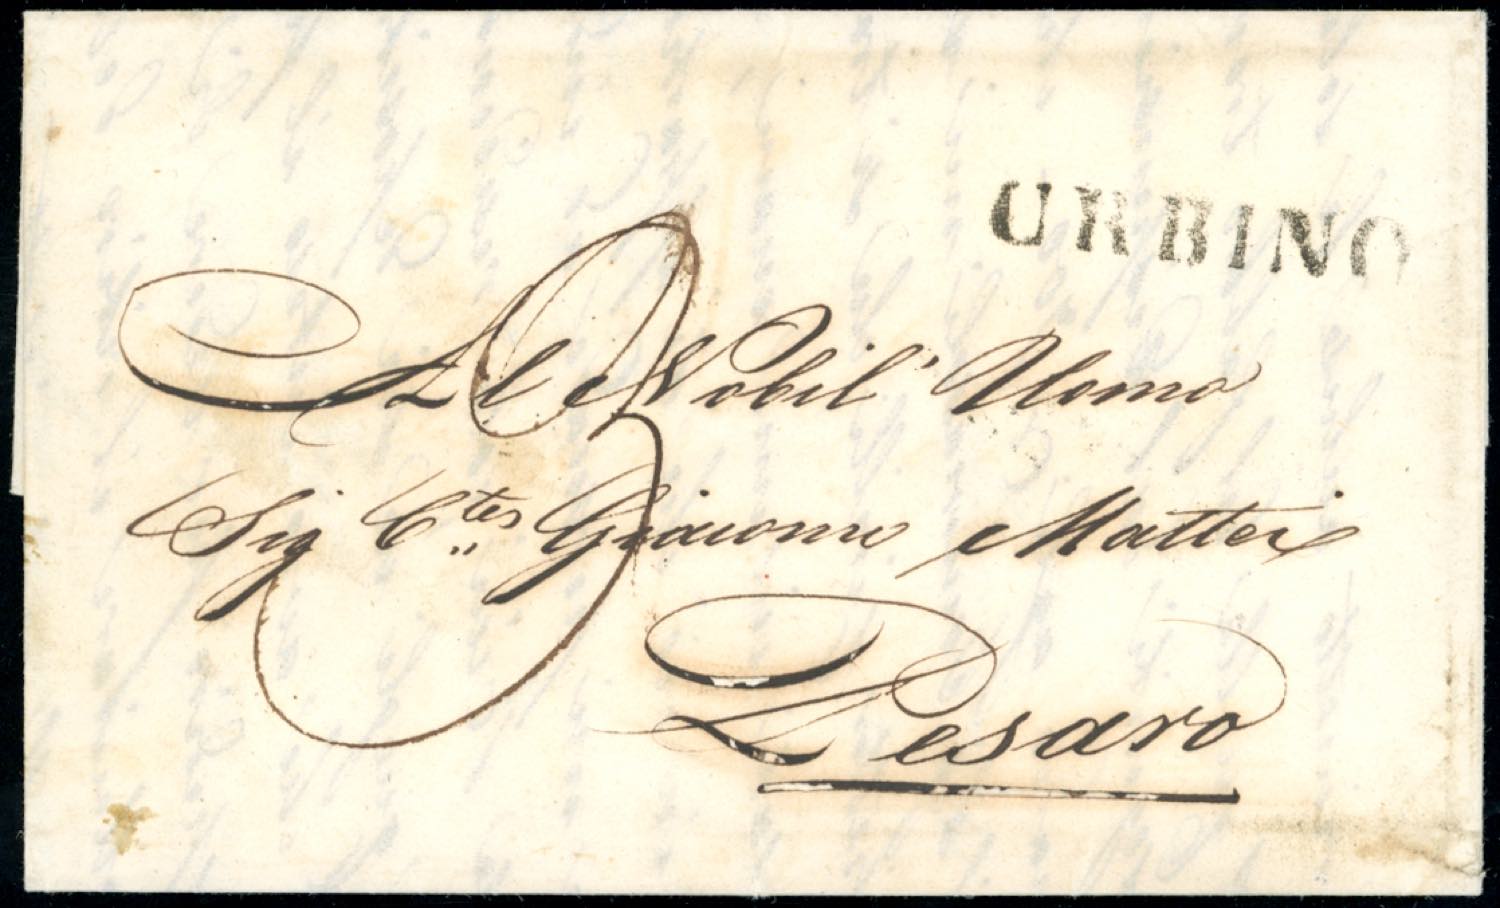 URBINO
Al Nobil' Uomo
Sig C.tes Giacomo Mattei
Pesaro
3